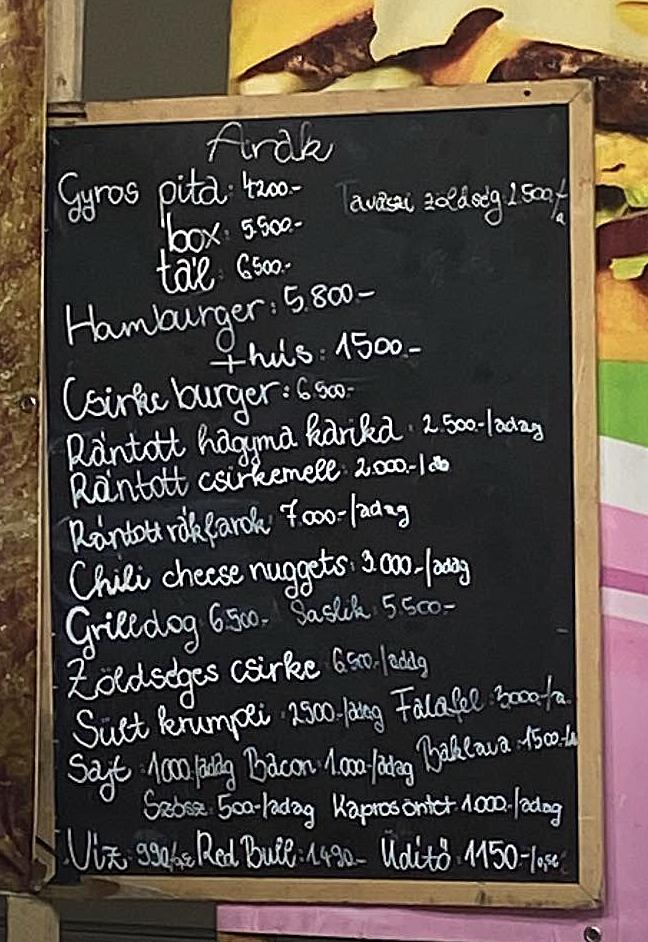 Árak
Gyros pita: 4200.- Tavaszi zöldség 2.500.-/a
box: 5.500.-
tál: 6500.-
Hamburger: 5.800-
+hús: 1500.-
Csirke burger: 6500.-
Rántott hagyma karika: 2.500.-/adag
Rántott csirkemell: 2.000.-/db
Rántott rákfarok: 7.000.-/adag
Chili cheese nuggets: 3.000.-/adag
Grilldog 6.500.- Saslik 5.500.-
Zöldséges csirke 6.500.-/addg
Sült krumpli: 2500.-/adag Falafel: 3000.-/a.
Sajt: 1000/adag Bacon: 1.000.-/adag Baklava: 1500.-/a
Szósz: 500.-/adag Kapros öntet 1.000.-/adag
Víz: 990/0,5l Red Bull: 1490.- Üdítő: 1150.-/0,5l